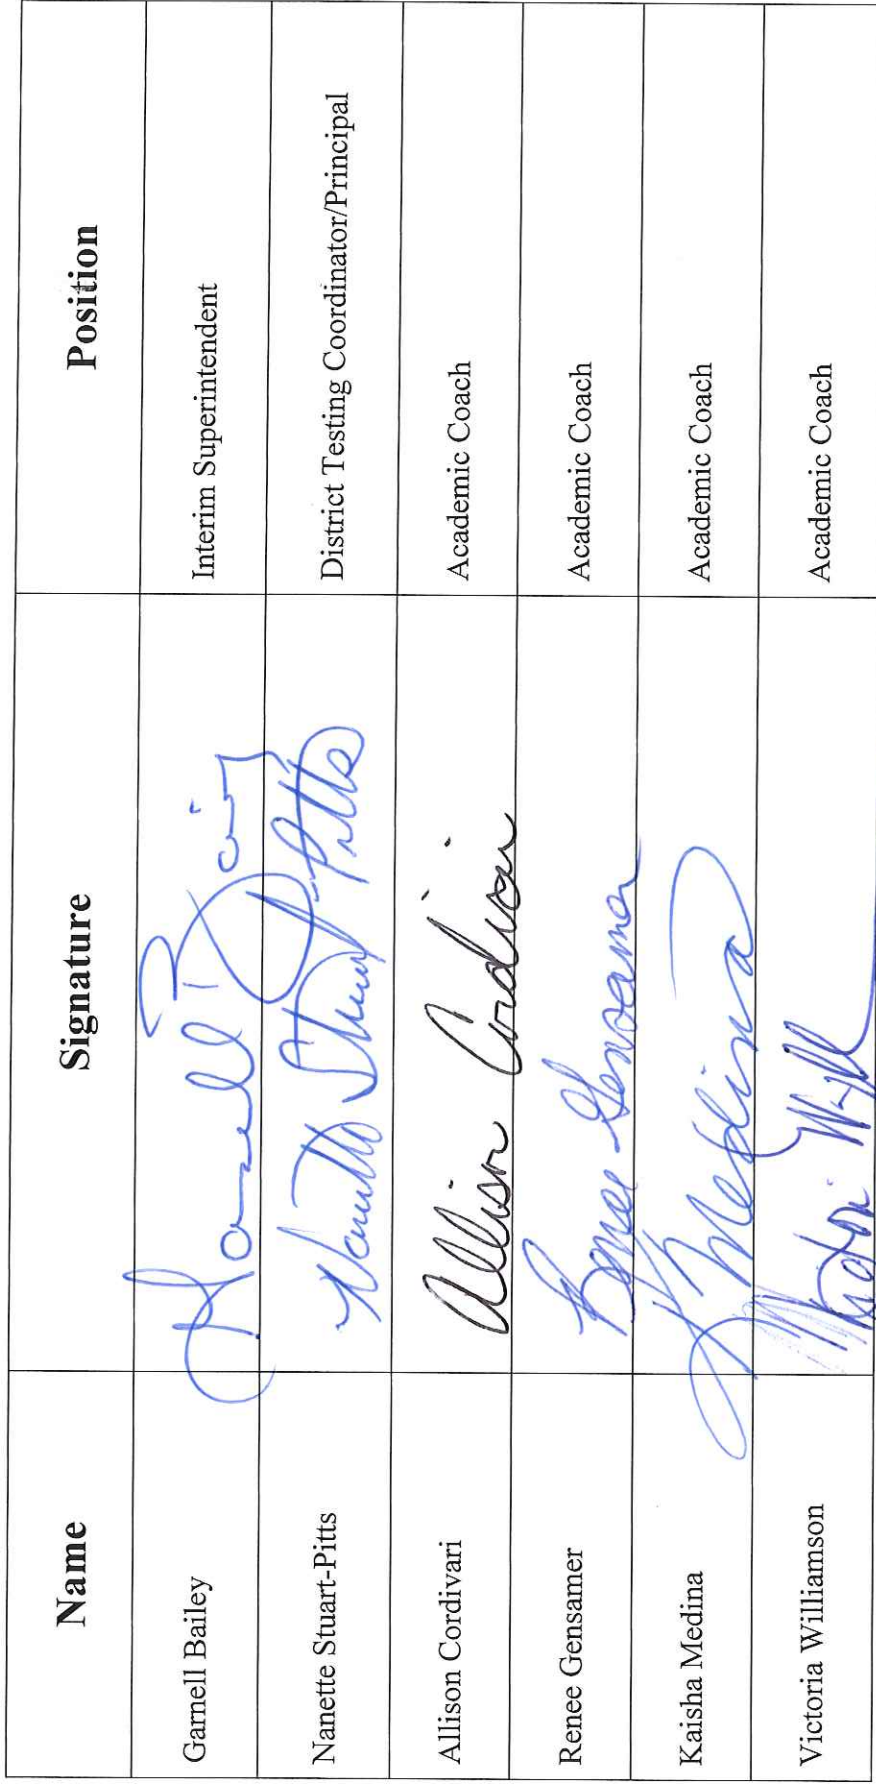 Name Signature Position
Garnell Bailey Garnell Bailey Interim Superintendent
Nanette Stuart-Pitts Nanette Stuart-Pitts District Testing Coordinator/Principal
Allison Cordivari Allison Cordivari Academic Coach
Renee Gensamer Renee Gensamer Academic Coach
Kaisha Medina K Medina Academic Coach
Victoria Williamson Academic Coach